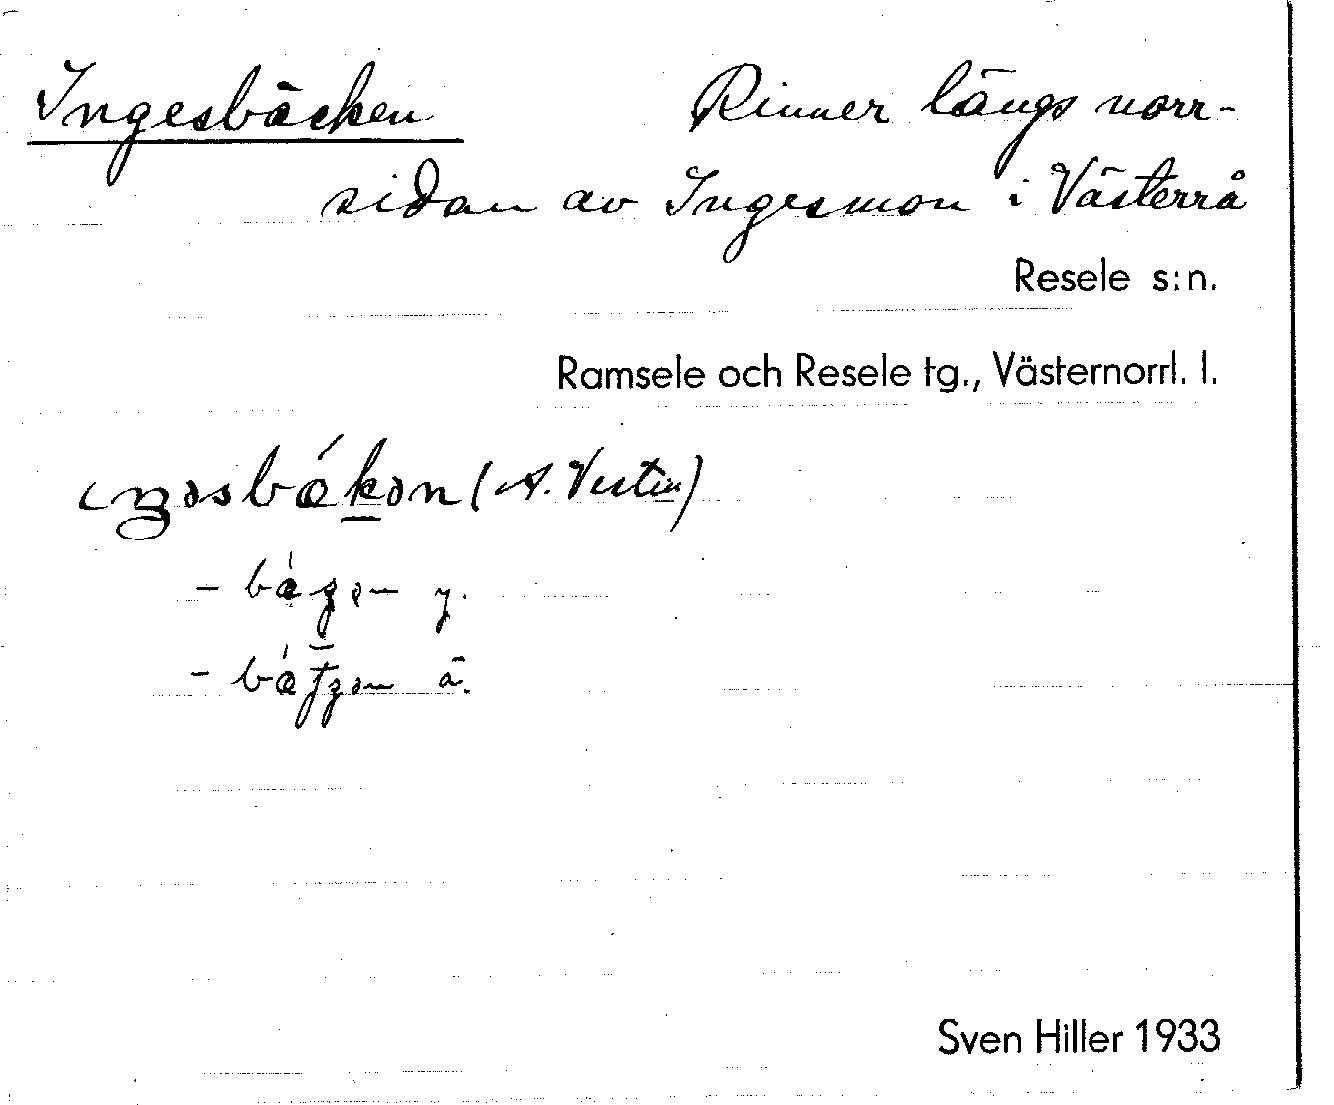 Ingesbäcken Rinner längs norr-
sidan av Ingesmon i Västerrå
Resele s:n.
Ramsele och Resele tg., Västernorrl. l.
(A. Vestin)
y.
ä.
Sven Hiller 1933